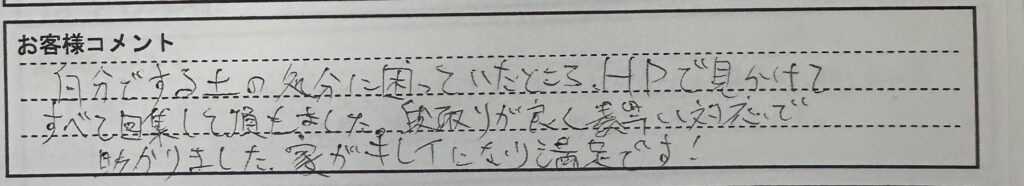 お客様コメント
自分でする土の処分に困っていたところ、HPで見かけて
すべて回集して頂きました。段取りが良く 対応で
助かりました。家がキレイになり満足です!